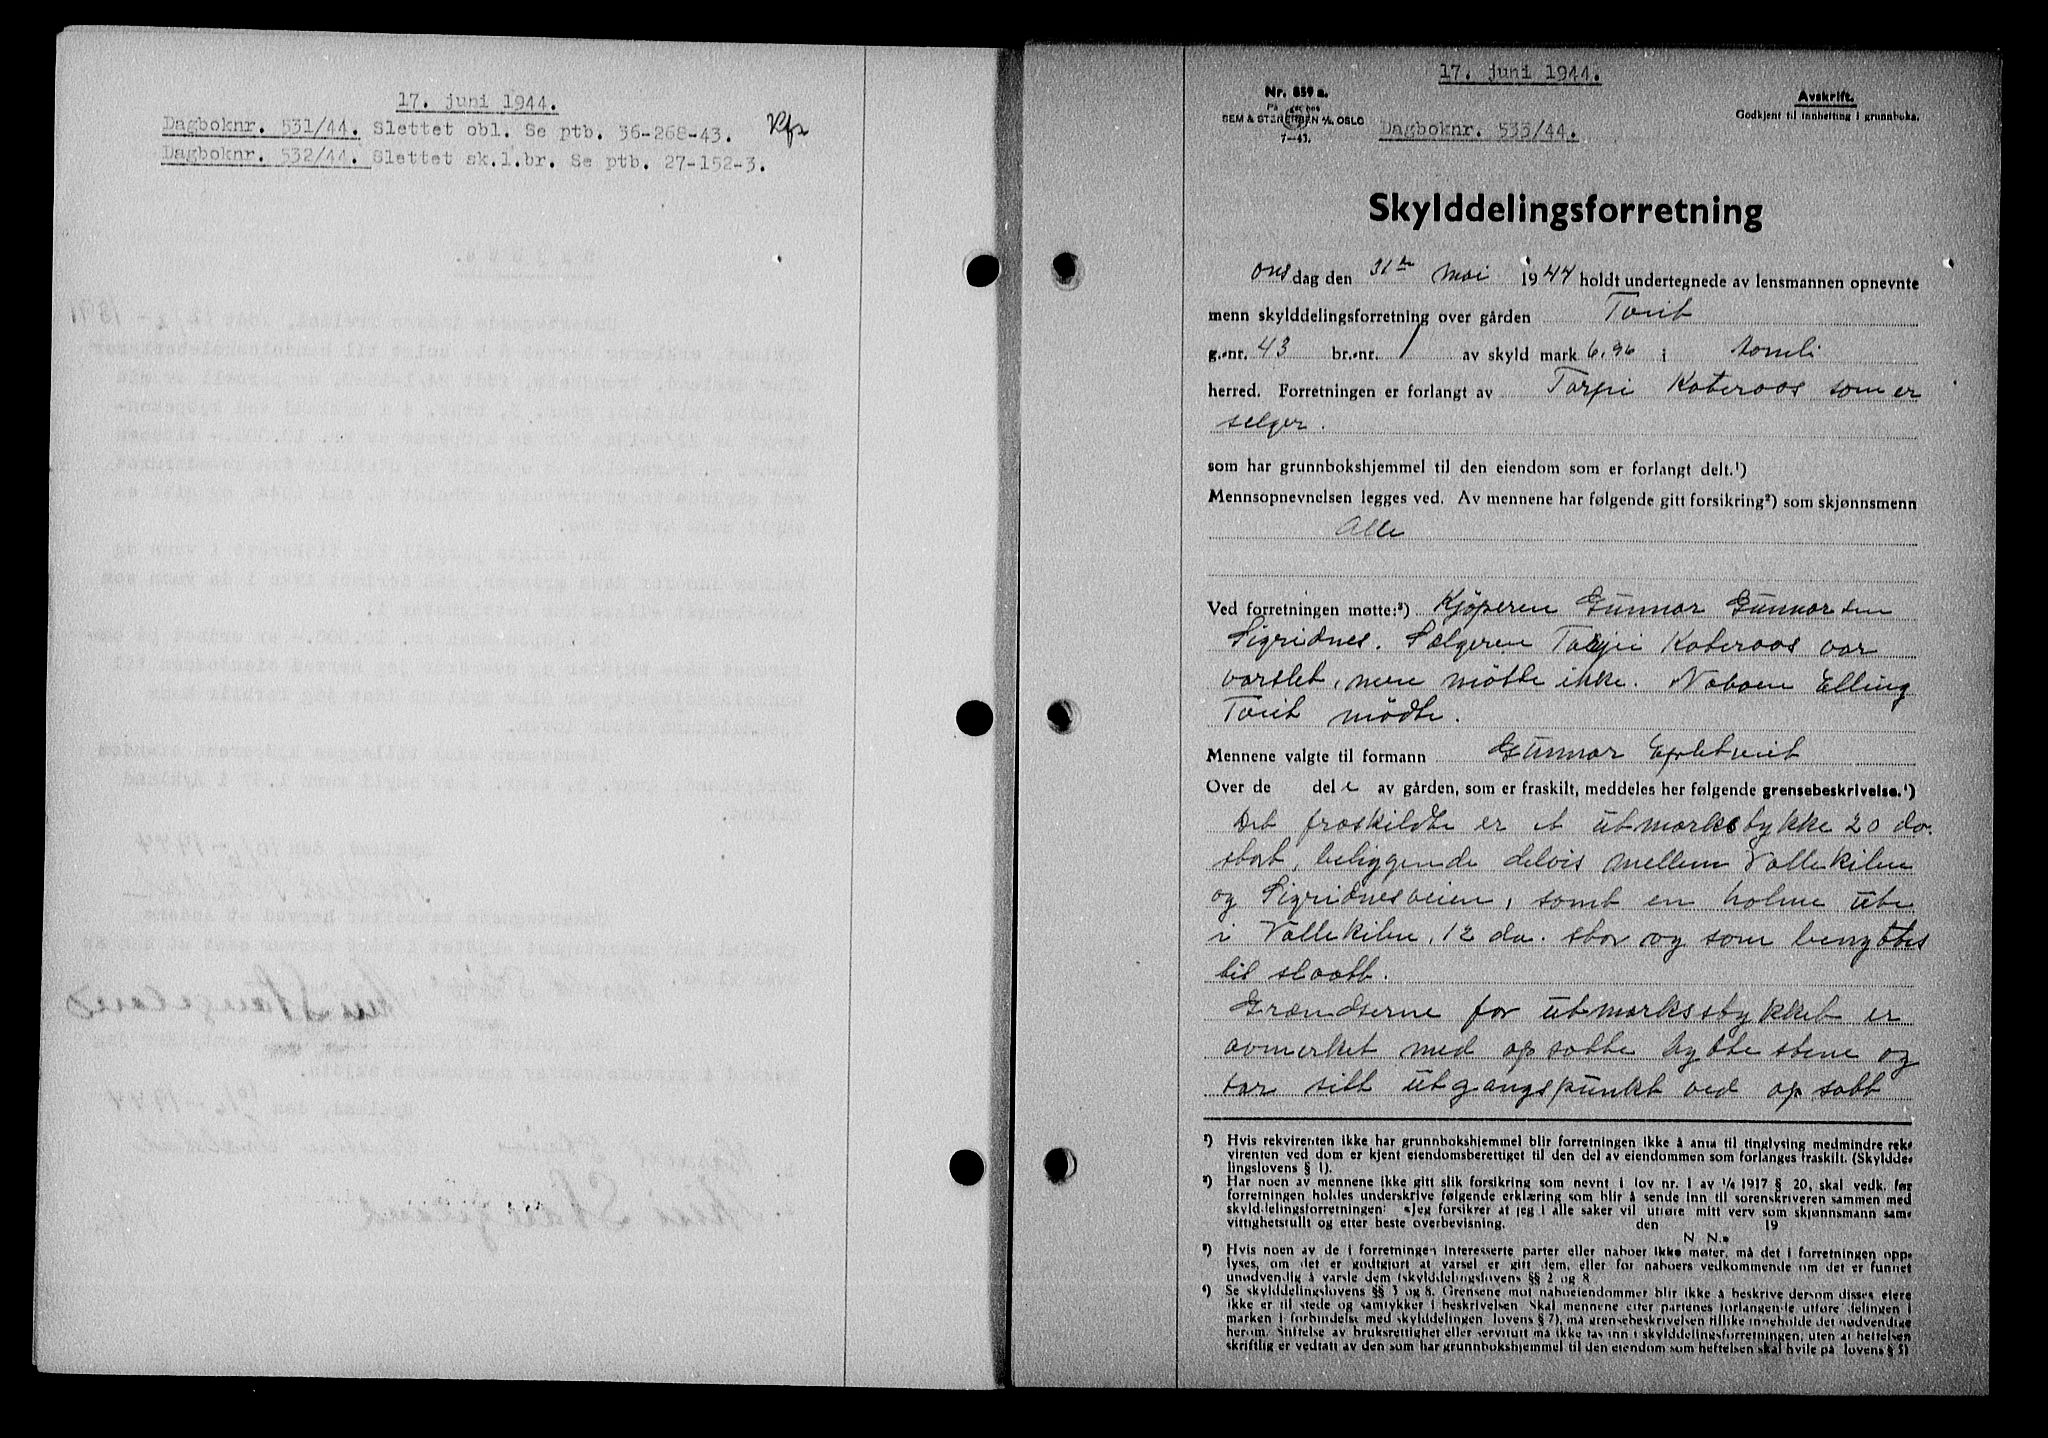 17. juni 1944.
Dagboknr. 531/44. Slettet obl. Se ptb. 36-268-43.
Dagboknr. 532/44. Slettet sk.l.br. Se ptb. 27-152-3.
17. juni 1944.
Nr. 859 a.
SEM & STENERSEN A/S, OSLO
7-43.
Dagboknr. 533/44.
Avskrift.
Godkjent til innhefting i grunnboka.
Skylddelingsforretning
ons dag den 31te mai 1944 holdt undertegnede av lensmannen opnevnte
menn skylddelingsforretning over gården Tveit
g.-nr. 43 br.-nr. 1 av skyld mark 6,96 i Aamli
herred. Forretningen er forlangt av Tarjei Kateraas som er
selger.
som har grunnbokshjemmel til den eiendom som er forlangt delt.¹)
Mennsopnevnelsen legges ved. Av mennene har følgende gitt forsikring²) som skjønnsmenn
Alle
Ved forretningen møtte:³) Kjøperen Gunnar Gunnarsen
Sigridnes. Sælgeren Tarjei Kateraas var
varslet, men møtte ikke. Naboen Elling
Tveit mødte.
Mennene valgte til formann Gunnar Epletveit
Over de del e av gården, som er fraskilt, meddeles her følgende grensebeskrivelse.⁴)
Det fraskildte er et utmarkstykke 20 da.
stort, beliggende delvis mellem Vallekilen
og Sigridnesveien, samt en holme ute
i Vallekilen, 12 da. stor og som benyttes
til slaatt.
Grændserne for utmarksstykket er
avmerket med opsatte bytte stene og
tar sitt utgangspunkt ved opsatt
¹) Hvis rekvirenten ikke har grunnbokshjemmel blir forretningen ikke å anta til tinglysing medmindre rek-
virenten ved dom er kjent eiendomsberettiget til den del av eiendommen som forlanges fraskilt. (Skyldde-
lingslovens § 1).
²) Har noen av mennene ikke gitt slik forsikring som nevnt i lov nr. 1 av 1/6 1917 § 20, skal vedk. før
forretningen holdes underskrive følgende erklæring som blir å sende inn til sorenskriveren sammen med
skylddelingsforretningen: «Jeg forsikrer at jeg i alle saker vil utføre mitt verv som skjønnsmann sam-
vittighetsfullt og etter beste overbevisning. den 19
N N.»
³) Hvis noen av de i forretningen interesserte parter eller naboer ikke møter, må det i forretningen opp-
lyses, om det er godtgjort at varsel er gitt dem, eller for naboers vedkommende om det er funnet
unødvendig å varsle dem (skylddelingslovens §§ 2 og 8.
⁴) Se skylddelingslovens §§ 3 og 8. Grensene mot naboeiendommer blir ikke å beskrive dersom disses eiere
ikke er til stede og samtykker i beskrivelsen Skal mennene etter partenes forlangende utføre delingen i
marken i forbindelse med skylddelingen lovens § 7), må grensebeskrivelsen tillike inneholde det nødvendige
herom. Stiftelse av bruksrettighet eller servitutt må ikke tas inn i skylddelingsforretningen, uten at heftelsen
skriftlig er vedtatt av den som har grunnbokshjemmel til den eiendom som heftelsen skal hvile på lovens § 5)